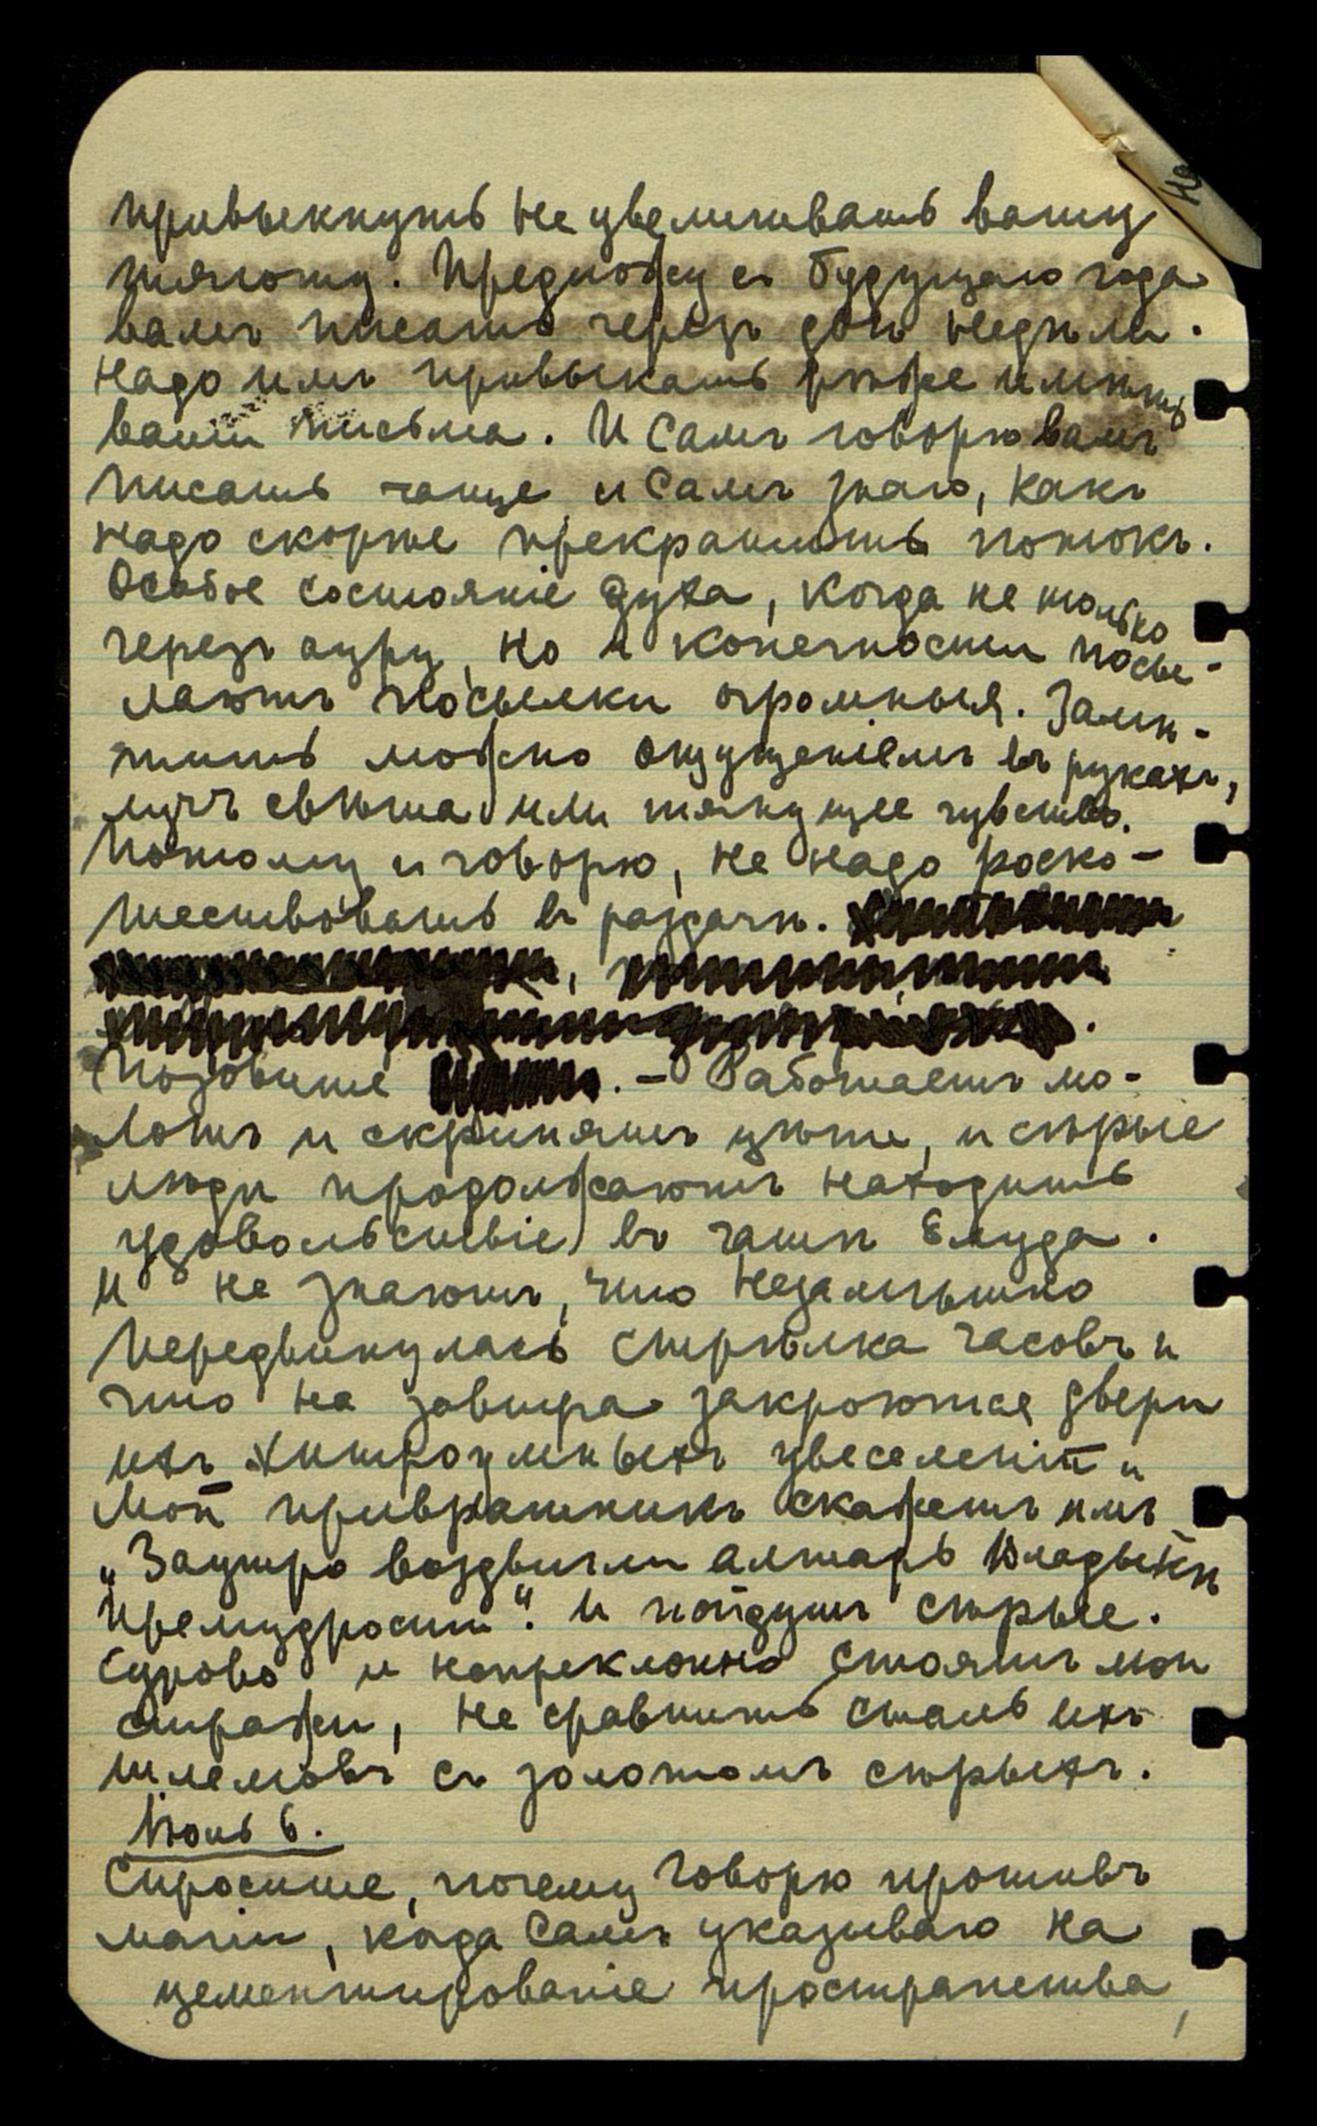 привыкнуть не увеличивать вашу
тяготу. Предложу съ будущаго года
вамъ писать черезъ двѣ недѣли.
Надо имъ привыкать рѣже имѣть
ваши письма. И Самъ говорю вамъ
писать чаще и Самъ знаю, какъ
надо скорѣе прекратить потокъ.
Особое состояніе духа, когда не только
черезъ ауру, но и конечности посы-
лаютъ посылки огромныя. Замѣ-
тить можно ощущеніемъ въ рукахъ,
лучъ свѣта или тянущее чувство.
Потому и говорю, не надо роско-
шествовать въ раздачѣ.
Позовите . – Работаетъ мо-
лотъ и скрипятъ цѣпи, и сѣрые
люди продолжаютъ находить
удовольствіе въ чашѣ блуда.
И не знаютъ, что незамѣтно
передвинулась стрѣлка часовъ и
что на завтра закроются двери
ихъ хитроумныхъ увеселеній и
Мой привратникъ скажетъ имъ
„Заутро воздвигли алтарь Владыкѣ
премудрости“. И пойдутъ сѣрые.
Сурово и непреклонно стоятъ мои
стражи, не сравнить сталь ихъ
шлемовъ съ золотомъ сѣрыхъ.
Июнь 6.
Спросите, почему говорю противъ
магіи, когда Самъ указываю на
цементированіе пространства,